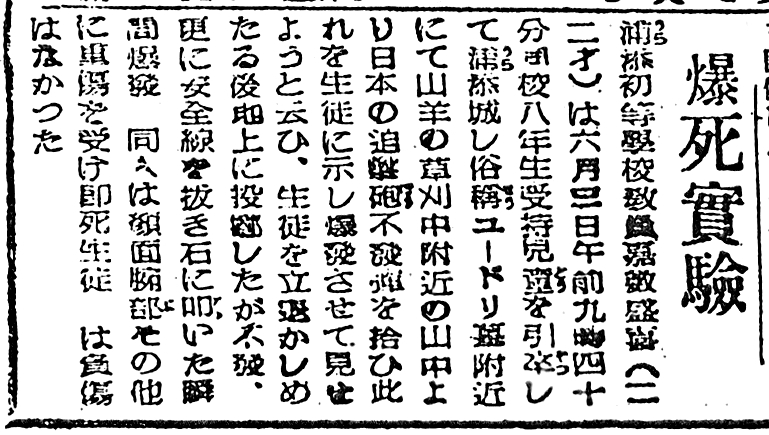 爆死實驗
浦添初等學校教員嘉数盛喜(二
二才)は六月三日午前九時四十
分同校八年生受持児童を引卒し
て浦添城し俗稱ユードリ墓附近
にて山羊の草刈中附近の山中よ
り日本の迫撃砲不發彈を拾ひ此
れを生徒に示し爆發させて見せ
ようと云ひ、生徒を立退かしめ
たる後地上に投擲したが不發、
更に安全線を抜き石に叩いた瞬
間爆發 同人は顔面腕部その他
に重傷を受け即死生徒 は負傷
はなかつた